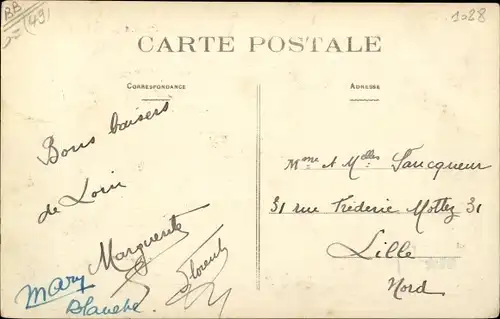 BB
(49)
1028
CARTE POSTALE
CORRESPONDANCE
ADRESSE
Bons baisers
de Loin
Marguerite
Florent
Mary
Blanche
Mme et Melles Fancqueur
31 rue Fréderic Mottez 31
Lille
Nord